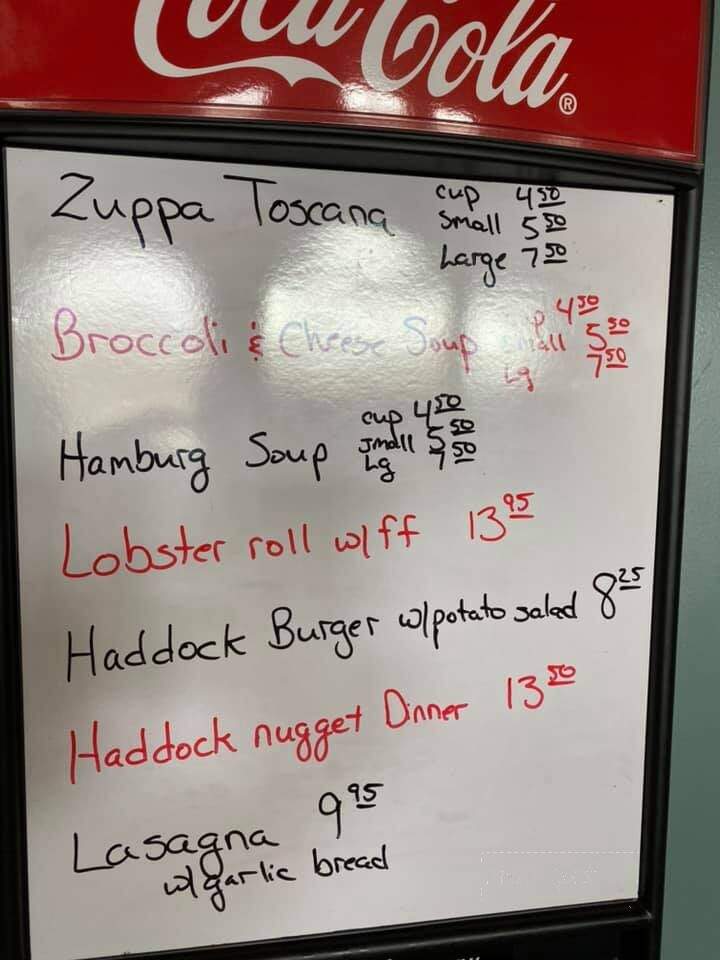 Coca-Cola®
Zuppa Toscana cup 4 50
small 5 50
Large 7 50
Broccoli & Cheese Soup 4 50
small 5 50
Lg 7 50
Hamburg Soup cup 4 50
small 5 50
Lg 7 50
Lobster roll w/ff 13 95
Haddock Burger w/potato salad 8 25
Haddock nugget Dinner 13 50
Lasagna 9 95
w/garlic bread